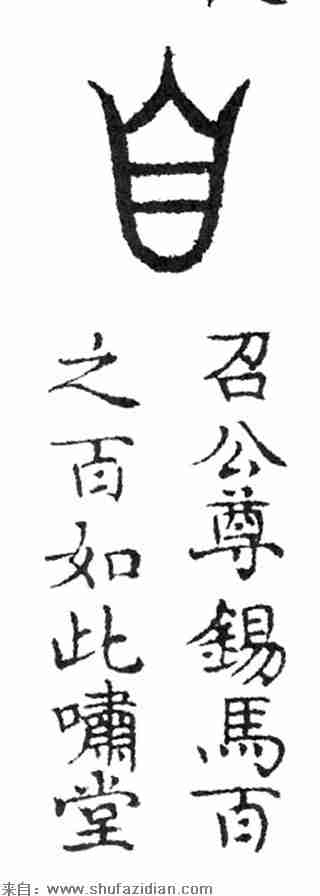 召公尊錫馬百
之百如此嘯堂
来自：www.shufazidian.com